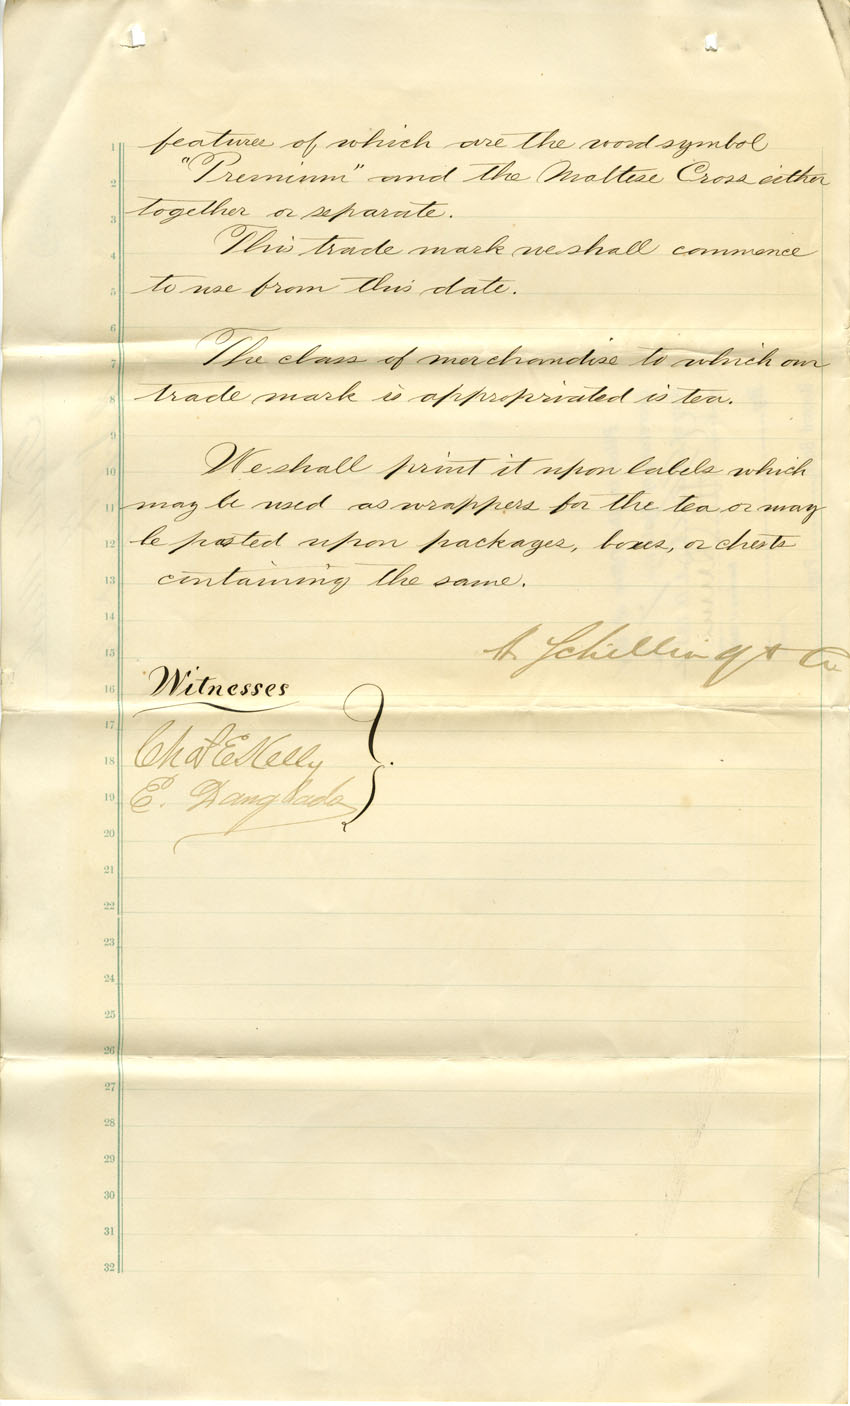 1 features of which are the word symbol
2 "Premium" and the Maltese Cross either
3 together or separate.
4 This trade mark we shall commence
5 to use from this date.
6
7 The class of merchandise to which our
8 trade mark is appropriated is tea.
9
10 We shall print it upon labels which
11 may be used as wrappers for the tea or may
12 be pasted upon packages, boxes, or chests
13 containing the same.
14
15 A. Schilling & Co
16 Witnesses
17
18 Chas E Kelly
19 E. Danglada
20
21
22
23
24
25
26
27
28
29
30
31
32